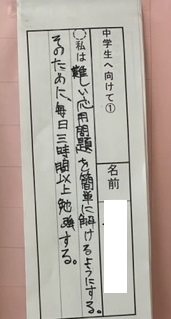 中学生へ向けて①
名前
○私は難しい応用問題を簡単に解けるようにする。
そのために、毎日三時間以上勉強する。